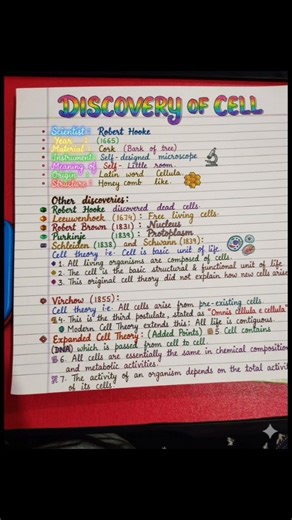 DISCOVERY OF CELL
Scientist:- Robert Hooke
Year:- (1665)
Material:- Cork (Bark of tree)
Instrument:- Self-designed microscope
Meaning of Self- Little room
Origin:- Latin word Cellula
Structure:- Honey comb like.
Other discoveries:
Robert Hooke discovered dead cells.
Leeuwenhoek (1674): Free living cells.
Robert Brown (1831): Nucleus
Purkinje (1839): Protoplasm
Schleiden (1838) and Schwann (1839):
Cell theory i.e. Cell is basic unit of life.
1. All living organisms are composed of cells.
2. The cell is the basic structural & functional unit of life
3. This original cell theory did not explain how new cells arise
Virchow (1855):
Cell theory i.e. All cells arise from pre-existing cells
4. This is the third postulate, stated as "Omnis cellula e cellula"
Modern Cell Theory extends this: All life is contiguous.
Expanded Cell Theory: (Added Points) 5. Cell contains
(DNA) which is passed from cell to cell.
6. All cells are essentially the same in chemical composition
and metabolic activities.
7. The activity of an organism depends on the total activi
of its cells.